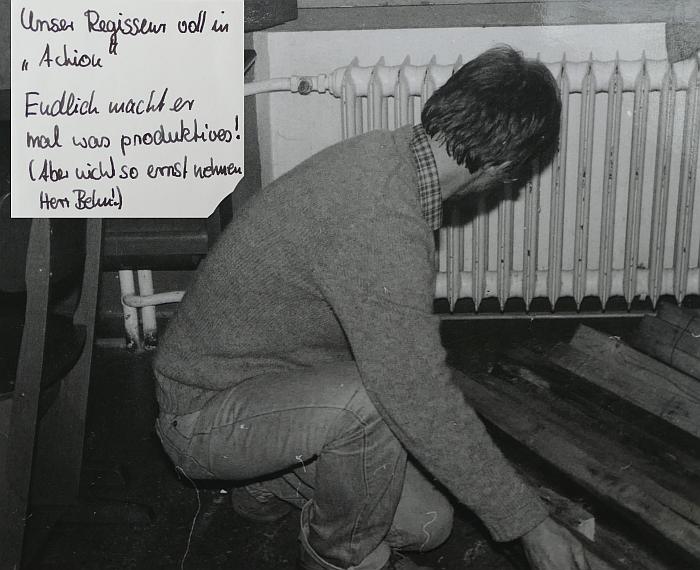 Unser Regisseur voll in
„Action"
Endlich macht er
mal was produktives!
(Aber nicht so ernst nehmen
Herr Behn!)